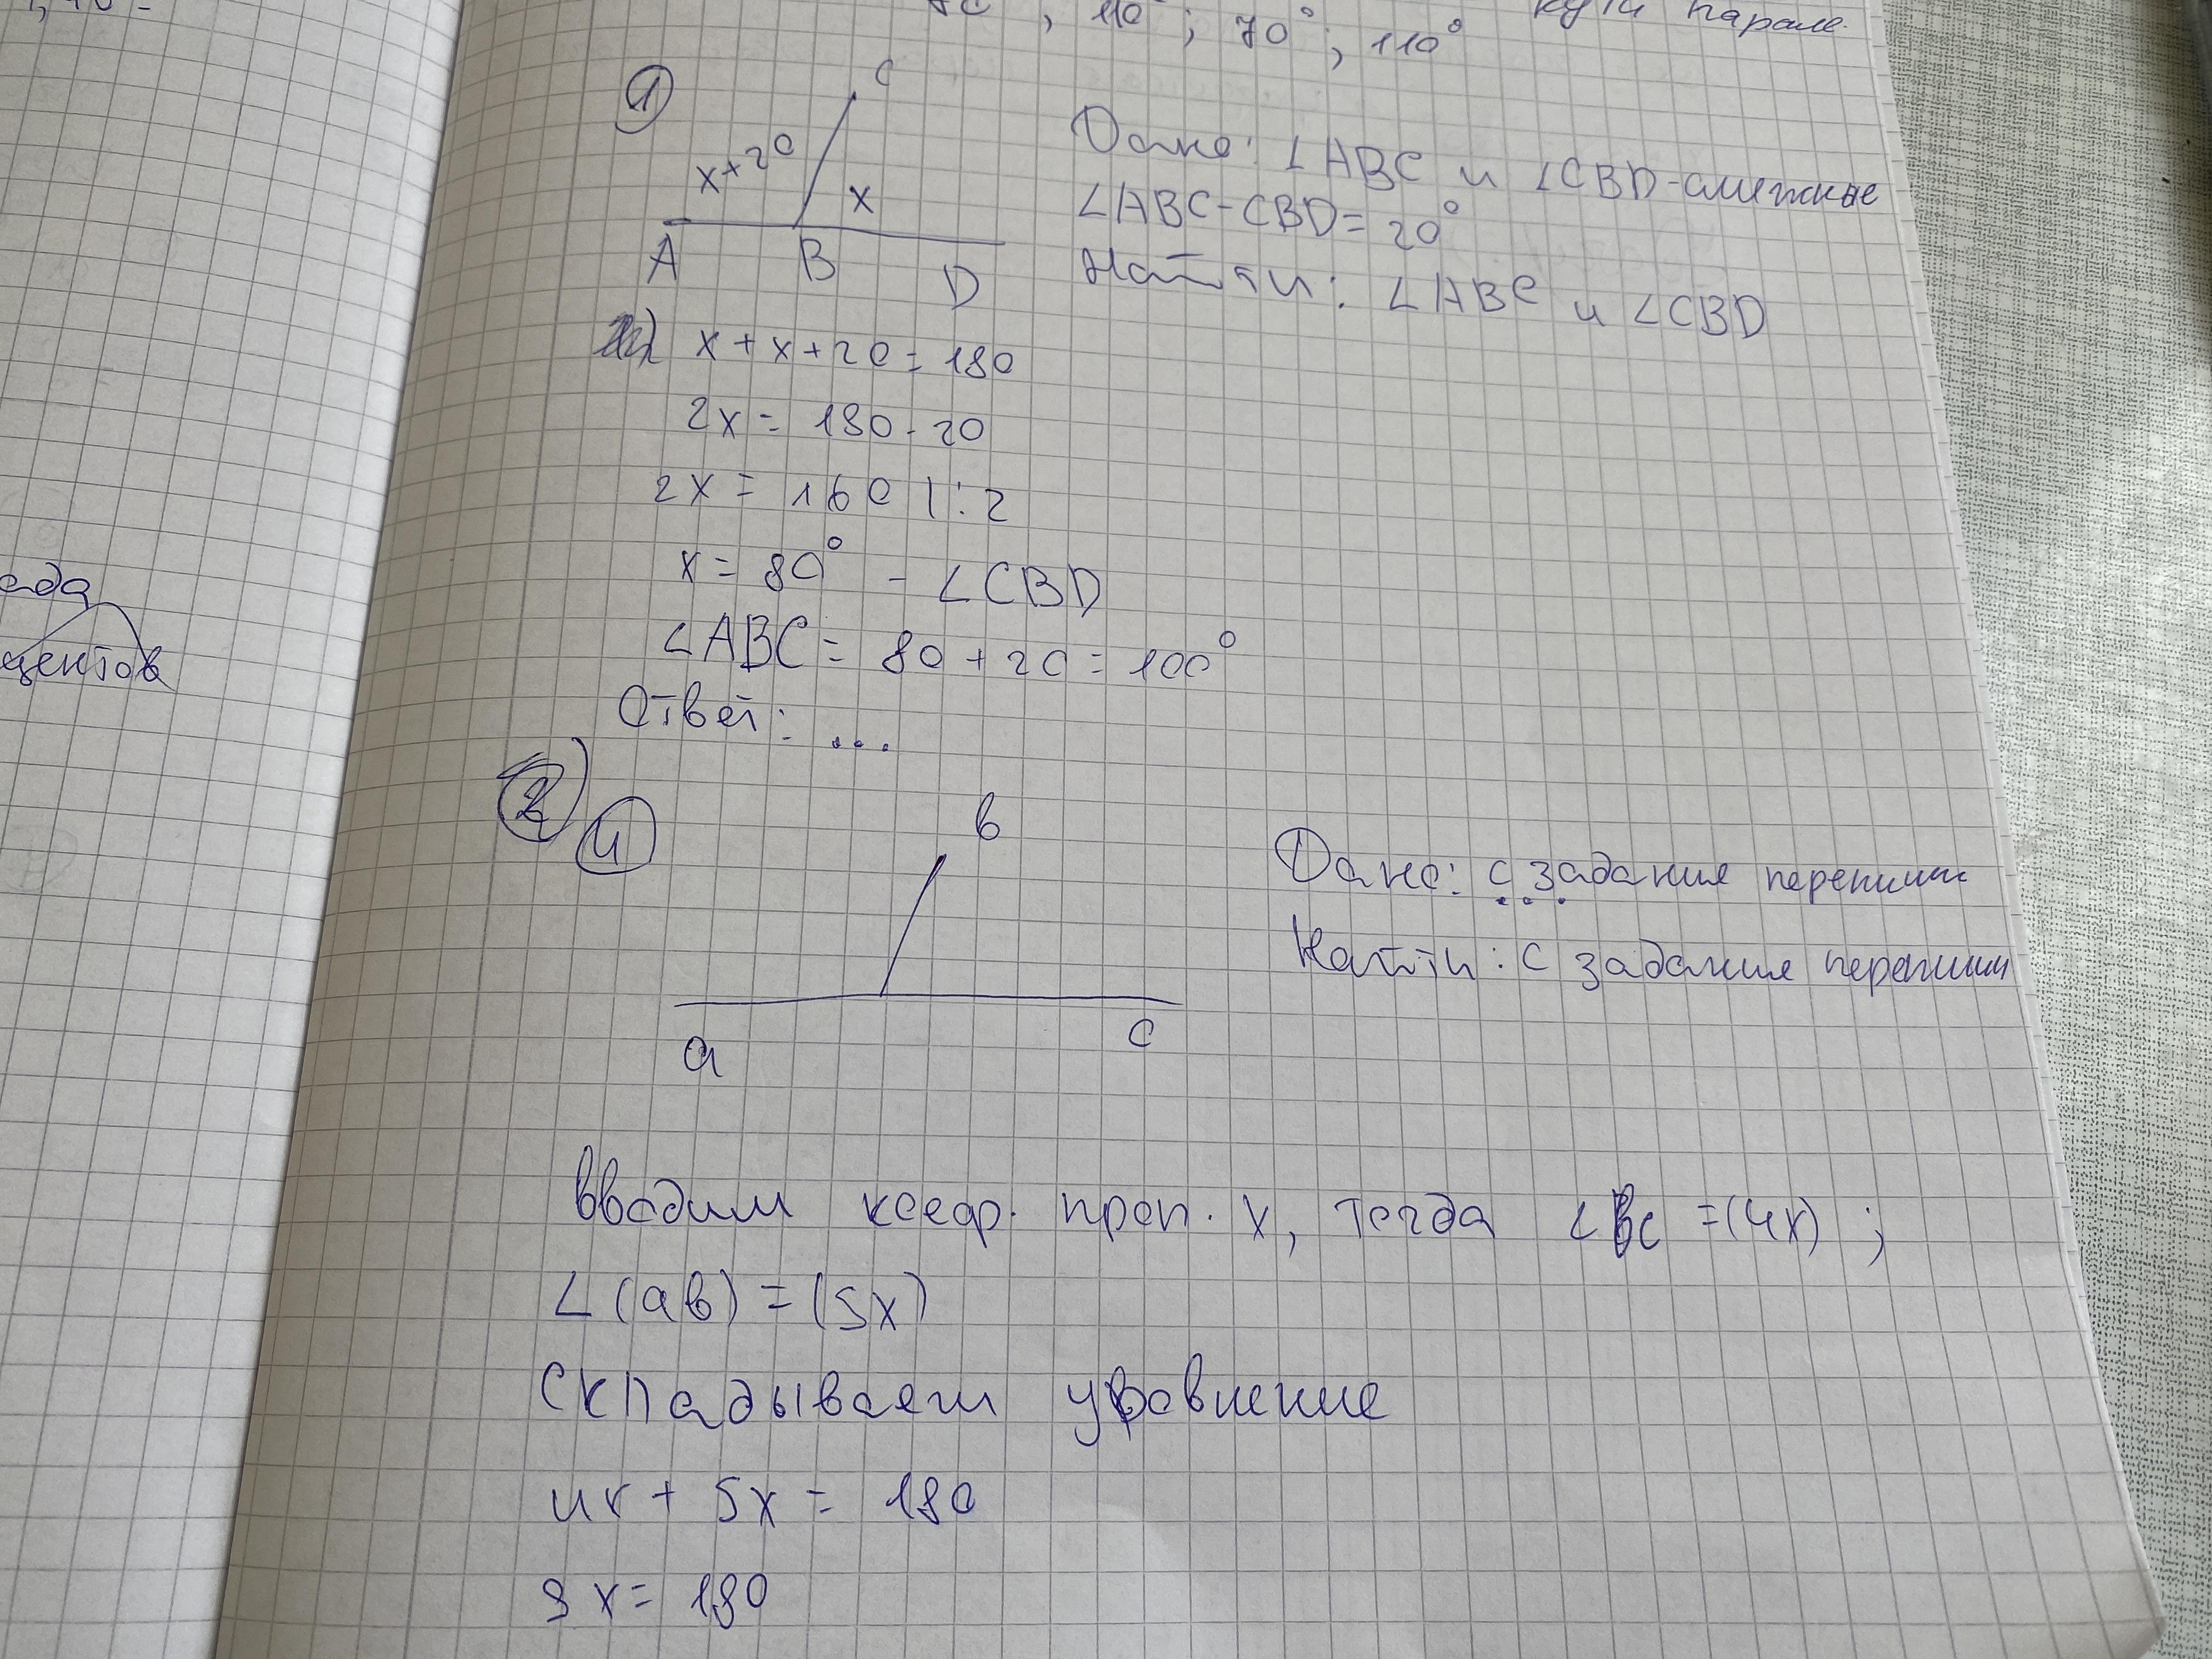 110°; 70°; 110°
кути парале
ада
центов
1
C
x+20
x
A B D
Дано: ∠ABC и ∠CBD-смежные
∠ABC-CBD=20°
Найти: ∠ABC и ∠CBD
x+x+20=180
2x=180-20
2x=160 |:2
x=80° - ∠CBD
∠ABC=80+20=100°
Ответ: ...
2
4
в
a
c
Дано: с задания перепиши
Найти: с задания перепиши
вводим коеф. проп. x, тогда ∠вc =(4x);
∠(aв)=(5x)
складываем уровнение
4x+5x=180
9x=180